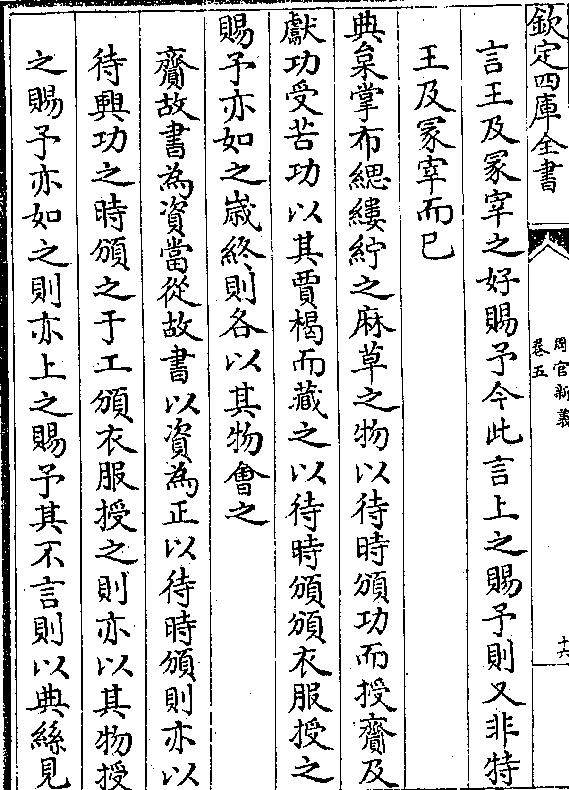 欽定四庫全書
周官新義
卷五
十六
言王及冢宰之好賜予今此言上之賜予則又非特
王及冢宰而已
典枲掌布緦縷紵之麻草之物以待時頒功而授齎及
獻功受苦功以其賈楬而藏之以待時頒頒衣服授之
賜予亦如之歲終則各以其物會之
齎故書為資當從故書以資為正以待時頒則亦以
待興功之時頒之于工頒衣服授之則亦以其物授
之賜予亦如之則亦上之賜予其不言則以典絲見